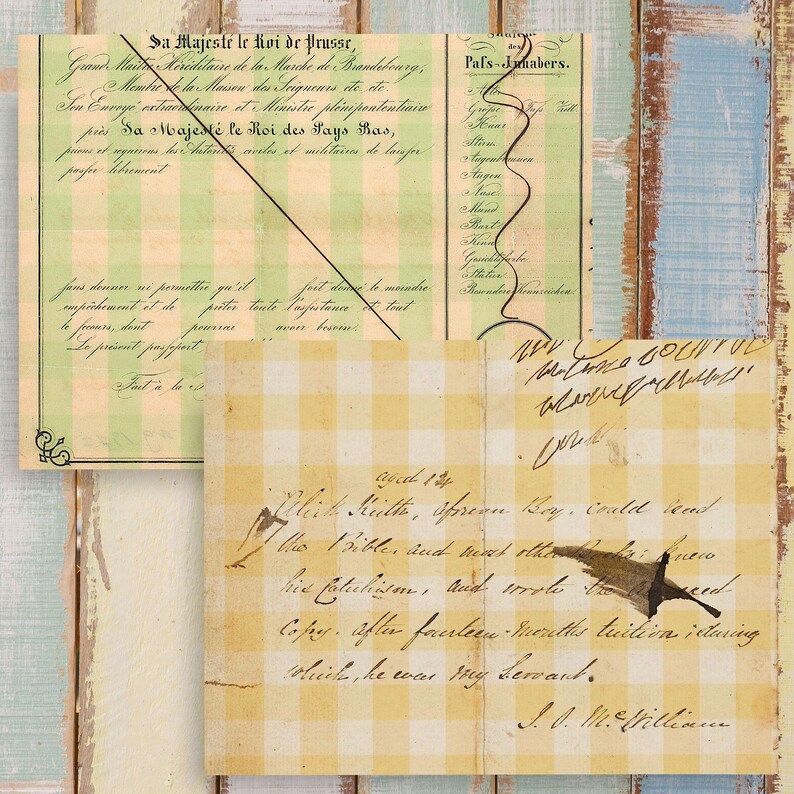 Sa Majesté le Roi de Prusse,
Grand Maître Héréditaire de la Marche de Brandebourg,
Membre de la Maison des Seigneurs etc. etc.
Son Envoyé extraordinaire et Ministre plénipotentiaire
près Sa Majesté le Roi des Pays Bas,
prions et requerons les Autorités civiles et militaires de laisser
passer librement
sans donner ni permettre qu'il soit donné le moindre
empêchement et de prêter toute l'assistance et tout
le secours, dont pourrai avoir besoin.
Le présent passeport
Fait à la
des
Pass-Inhabers.
Alter
Grosse Fuss Zoll
Haar
Stirn
Augenbraunen
Augen
Nase
Mund
Bart
Kinn
Gesichtsfarbe
Statur
Besondere Kennzeichen
aged 14
Keith, African Boy. could read
the Bible, and most other Books: knew
his Catechism, and wrote the
Copy. after fourteen Months tuition; during
which, he was my Servant.
J. O. McWilliam